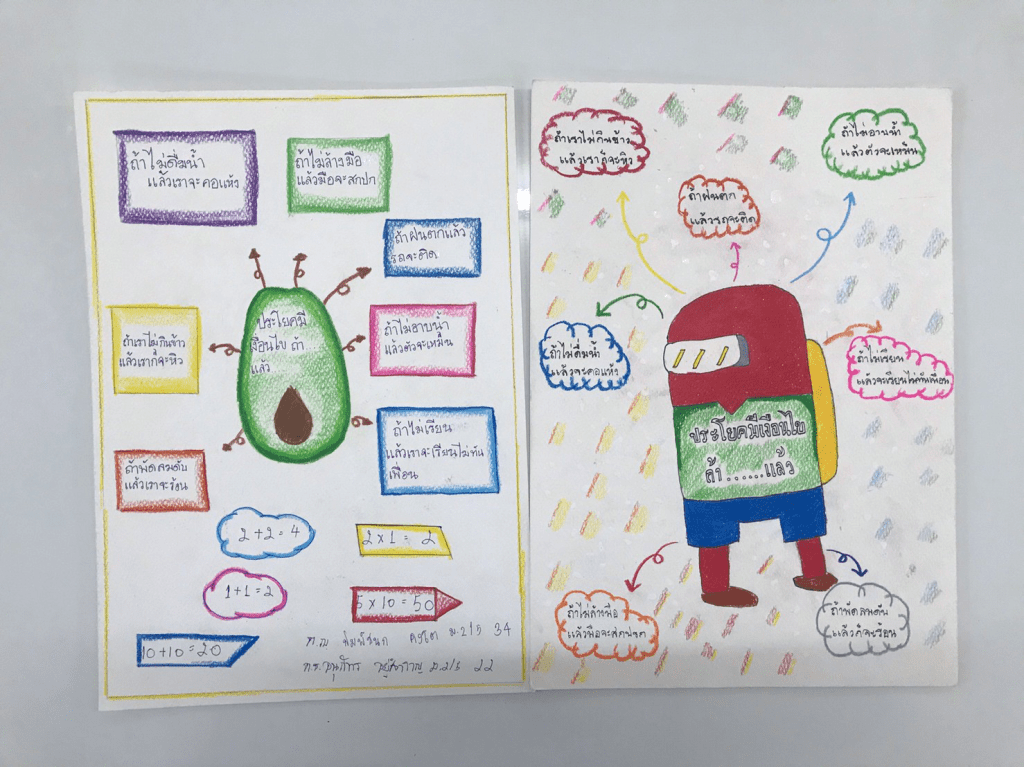 ถ้าไม่ดื่มน้ำ
แล้วเราจะคอแห้ง
ถ้าไม่ล้างมือ
แล้วมือจะสกปก
ถ้าฝนตกแล้ว
รถจะติด
ถ้าเราไม่กินข้าว
แล้วเราก็จะหิว
ประโยคมี
เงื่อนไข ถ้า
แล้ว
ถ้าไม่อาบน้ำ
แล้วตัวจะเหม็น
ถ้าไม่เรียน
แล้วเราจะเรียนไม่ทัน
เพื่อน
ถ้าพัดลมดับ
แล้วเราจะร้อน
2+2=4
2×1= 2
1+1=2
5×10=50
10+10=20
ม.2/5 34
ม.2/5 22
ถ้าเราไม่กินข้าว
แล้วเราก็จะหิว
ถ้าไม่อาบน้ำ
แล้วตัวจะเหม็น
ถ้าฝนตก
แล้วรถจะติด
ถ้าไม่ดื่มน้ำ
แล้วจะคอแห้ง
ถ้าไม่เรียน
แล้วจะเรียนไม่ทันเพื่อน
ประโยคมีเงื่อนไข
ถ้า......แล้ว
ถ้าไม่ล้างมือ
แล้วมือจะสกปรก
ถ้าพัดลมดับ
แล้วก็จะร้อน